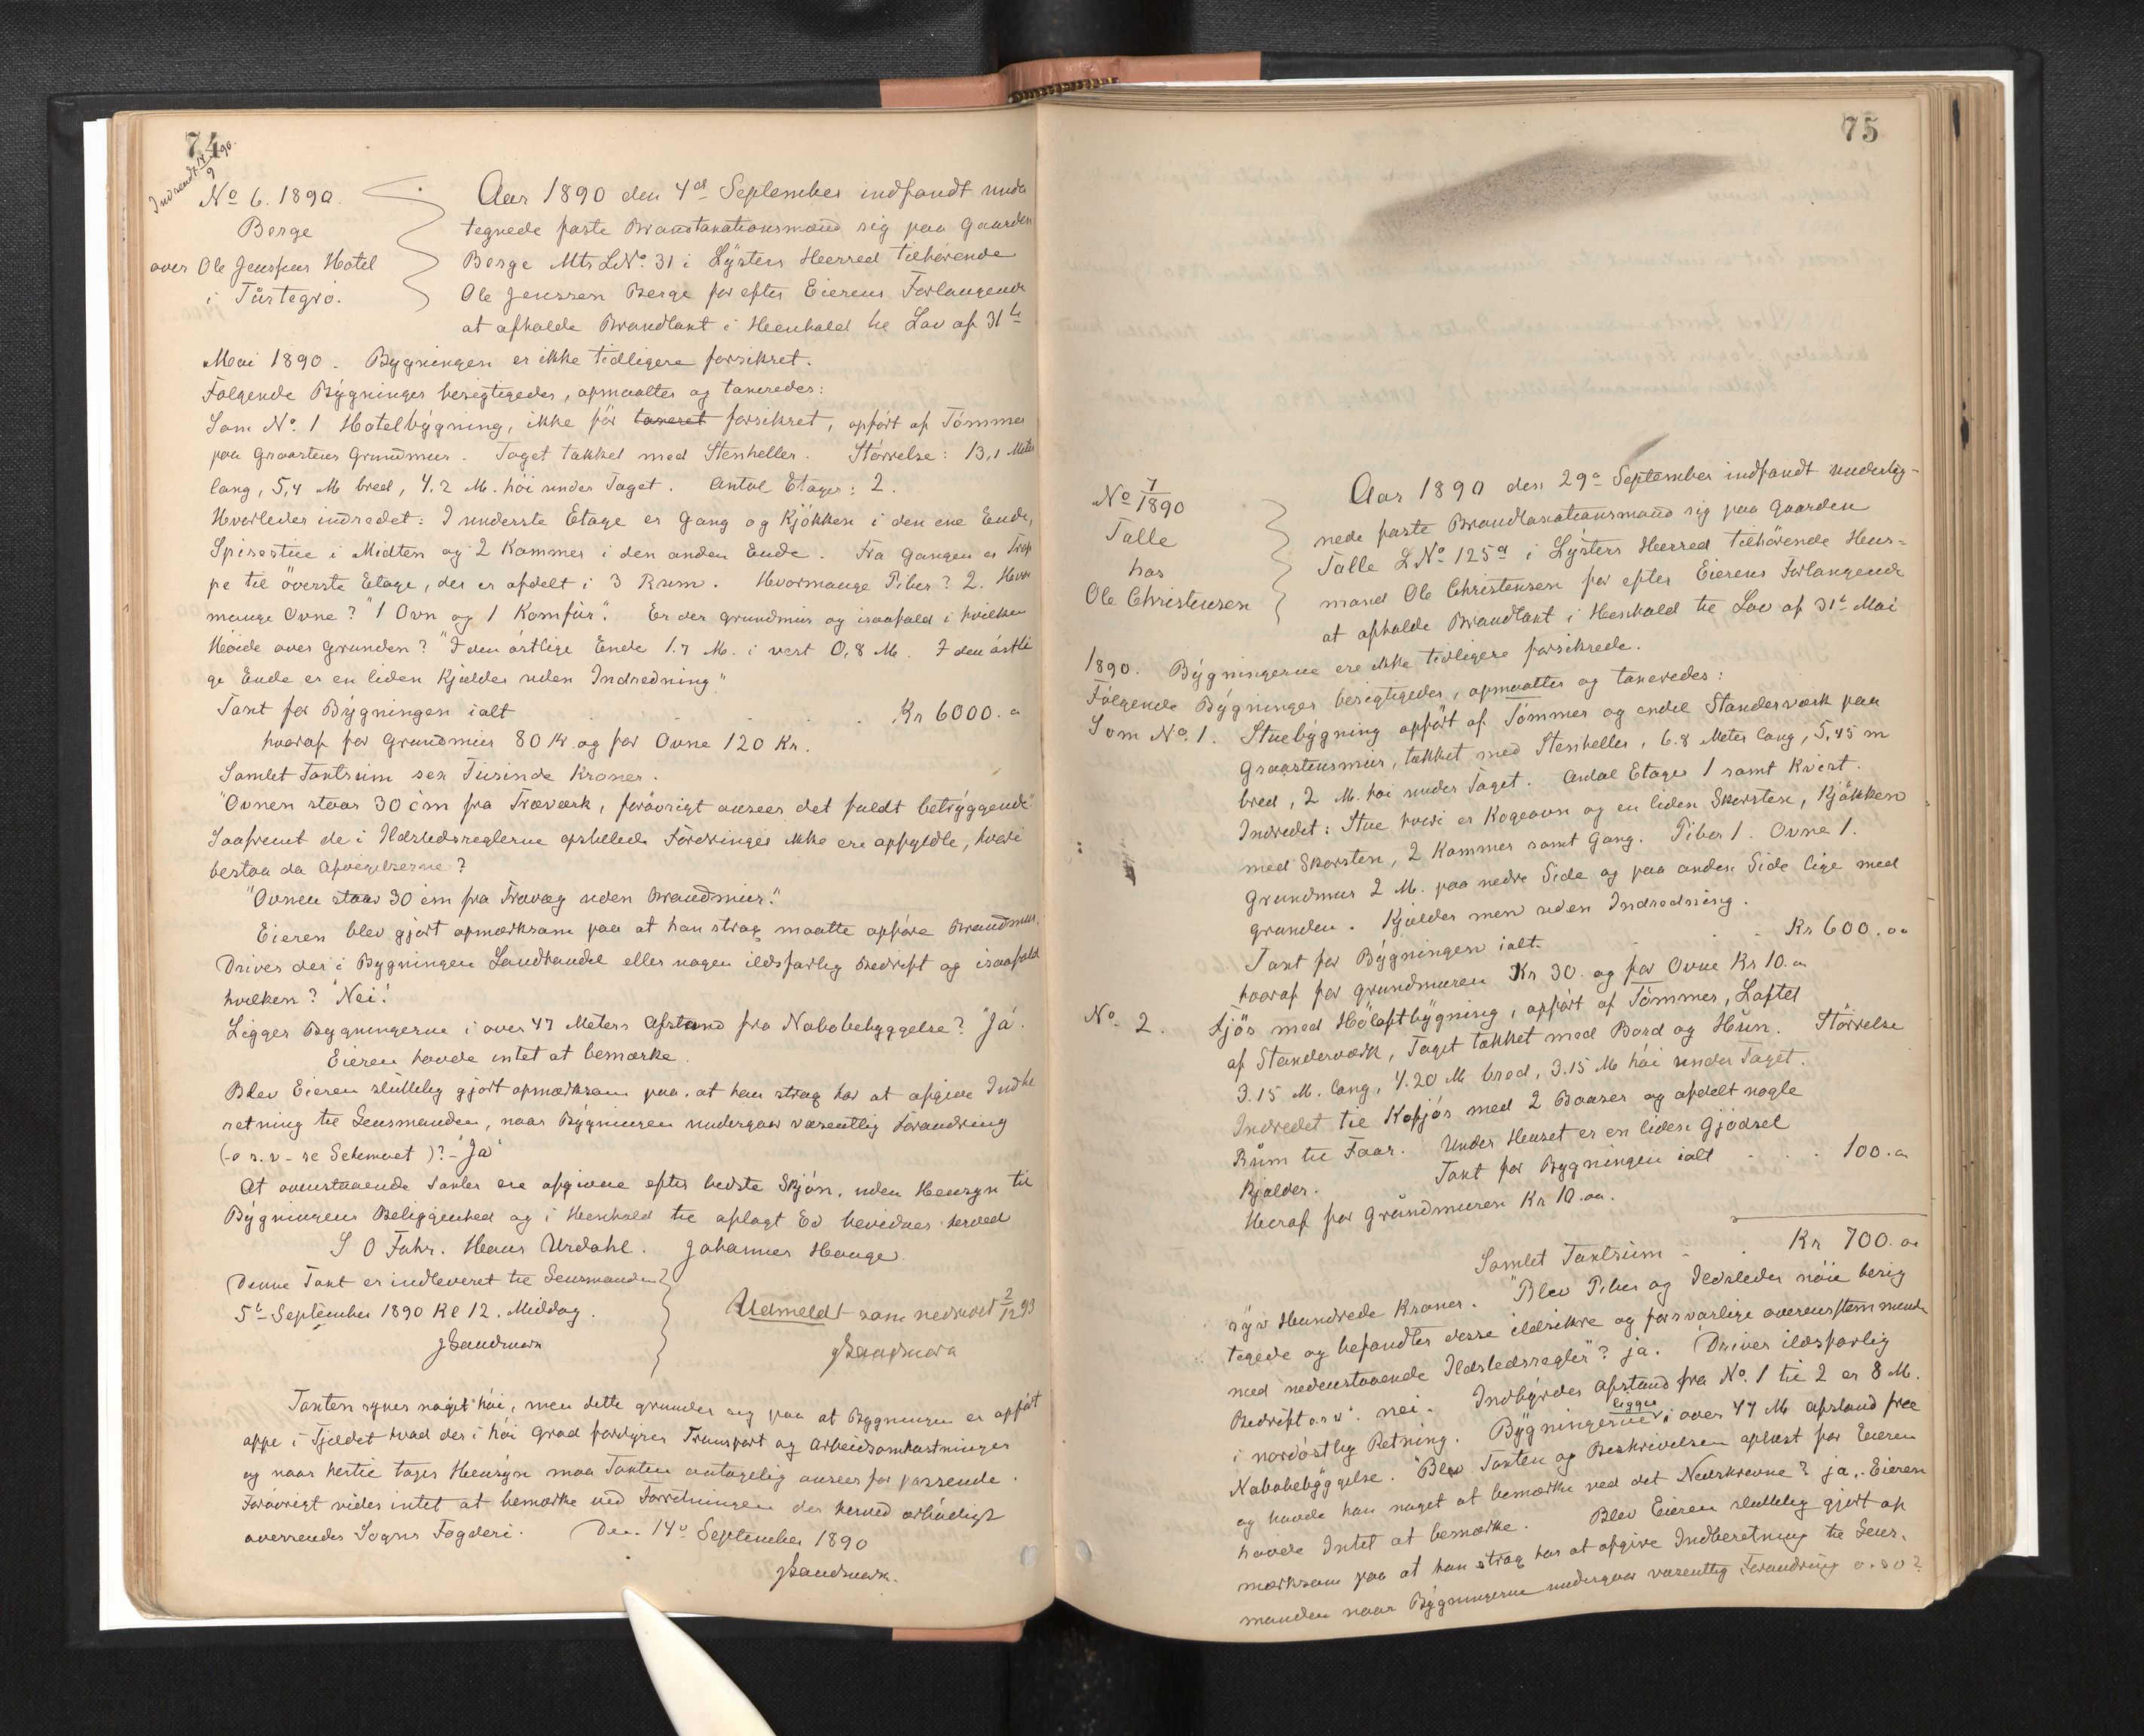 74
Indsendt 14/9 90.
No 6. 1890.
Berge
over Ole Jenssens Hotel
i Tùrtegrø.
Aar 1890 den 4de September indfandt under
tegnede faste Brandtaxationsmænd sig paa Gaarden
Berge Mts LNo. 31 i Lysters Herred tilhørende
Ole Jenssen Berge for efter Eierens Forlangende
at afholde Brandtaxt i Henhold til Lov af 31te
Mai 1890. Bygningen er ikke tidligere forsikret.
Følgende Bygninger besigtigedes, opmaaltes og taxeredes:
Som No. 1 Hotelbygning, ikke før taxeret forsikret, opført af Tømmer
paa Graastens Grundmur. Taget tækket med Stenheller. Størrelse: 13,1 Meter
lang, 5,4 M bred, 4.2 M. høi under Taget. Antal Etager: 2.
Hvorledes indredet: I underste Etage er Gang og Kjøkken i den ene Ende,
Spisestue i Midten og 2 Kammer i den anden Ende. Fra Gangen er Trap
pe til øverste Etage, der er afdelt i 3 Rum. Hvormange Piber? 2. Hvor
mange Ovne? "1 Ovn og 1 Komfùr". Er der grundmur og isaafald i hvilken
Høide over Grunden? "I den østlige Ende 1.7 M. i vest 0,8 M. I den østli
ge Ende er en liden Kjælder uden Indredning".
Taxt for Bygningen ialt . . . . . Kr 6000.oo
hvoraf for Grundmur 80 Kr og for Ovne 120 Kr.
Samlet Taxtsum sex Tusinde Kroner.
"Ovnen staar 30 cm fra Træværk, forøvrigt ansees det fuldt betryggende"
Saafremt de i Ildstedsreglerne opstillede Fordringer ikke ere opfyldte, hvori
bestaa da Afvigelserne?
"Ovnen staar 30 cm fra Trævæg uden Brandmur".
Eieren blev gjort opmærksom paa at han strax maatte opføre Brandmur.
Drives der i Bygningen Landhandel eller nogen ildsfarlig Bedrift og isaafald
hvilken? "Nei".
Ligger Bygningerne i over 47 Meters Afstand fra Nabobebyggelse? "Ja".
Eieren havde intet at bemærke.
Blev Eieren sluttelig gjort opmærksom paa, at han strax har at afgive Indbe
retning til Lensmanden, naar Bygningen undergaar væsentlig Forandring
(-o s. v - se Schemaet)? - "Ja"
At ovenstaaende Taxter ere afgivne efter bedste Skjøn, uden Hensyn til
Bygningens Beliggenhed og i Henhold til aflagt Ed bevidnes herved
S O Fuhr. Hans Urdahl. Johannes Hauge.
Denne Taxt er indleveret til Lensmanden
5te September 1890 Kl 12. Middag.
JSandmark
Udmeldt som nedrevet 2/12 93
JSandmark
Taxten synes noget høi, men dette grunder sig paa at Bygningen er opført
oppe i Fjeldet hvad der i høi Grad fordyrer Transport og Arbeidsomkostninger
og naar hertil tages Hensyn maa Taxten antagelig ansees for passende.
Forøvrigt vides intet at bemærke ved Forretningen der herved ærbødigst
oversendes Sogns Fogderi. Den 14de September 1890
JSandmark.
75
No 7/1890
Talle
hos
Ole Christensen
Aar 1890 den 29de September indfandt underteg-
nede faste Brandtaxationsmænd sig paa Gaarden
Talle LNo. 125a i Lysters Herred tilhørende Hus-
mand Ole Christensen for efter Eierens Forlangende
at afholde Brandtaxt i Henhold til Lov af 31te Mai
1890. Bygningerne ere ikke tidligere forsikrede.
Følgende Bygninger besigtigedes, opmaaltes og taxeredes:
Som No. 1. Stuebygning opført af Tømmer og endel Standerværk paa
Graastensmur, tækket med Stenheller, 6.8 Meter lang, 5,45 m
bred, 2 M. høi under Taget. Antal Etager 1 samt Kvist.
Indredet: Stue hvori er Kogeovn og en liden Skorsten, Kjøkken
med Skorsten, 2 Kammer samt Gang. Piber 1. Ovne 1.
Grundmur 2 M. paa nedre Side og paa anden Side lige med
Grunden. Kjelder men uden Indredning.
Taxt for Bygningen ialt . . . Kr 600.oo
hvoraf for Grundmuren Kr 30. og for Ovne Kr 10.oo
No. 2. Fjøs med Høløftbygning, opført af Tømmer, Loftet
af Standerværk, Taget tækket med Bord og Hun. Størrelse
3.15 M. lang, 4.20 M bred, 3.15 M høi under Taget.
Indredet til Kofjøs med 2 Baaser og afdelt nogle
Rùm til Faar. Under Huset er en liden Gjødsel
Kjælder. Taxt for Bygningen ialt . . . 100.oo
Heraf for Grundmuren Kr 10.oo.
Samlet Taxtsum - . Kr 700.oo
syv Hundrede Kroner. "Blev Piber og Ildsteder nøie besig
tigede og befandtes disse ildsikre og forsvarlige overensstemmende
med nedenstaaende Ildstedsregler"? ja. Drives ildsfarlig
Bedrift o.s v". nei. Indbyrdes Afstand fra No. 1 til 2 er 8 M.
i nordøstlig Retning. Bygningerne ligger i over 47 M. Afstand fra
Nabobebyggelse. "Blev Taxten og Beskrivelsen oplæst for Eieren
og havde han noget at bemærke ved det Nedskrevne? ja, Eieren
havde Intet at bemærke. Blev Eieren sluttelig gjort op
mærksom paa at han strax har at afgive Indberetning til Lens-
manden naar Bygningerne undergaar væsentlig Forandring o.s v?